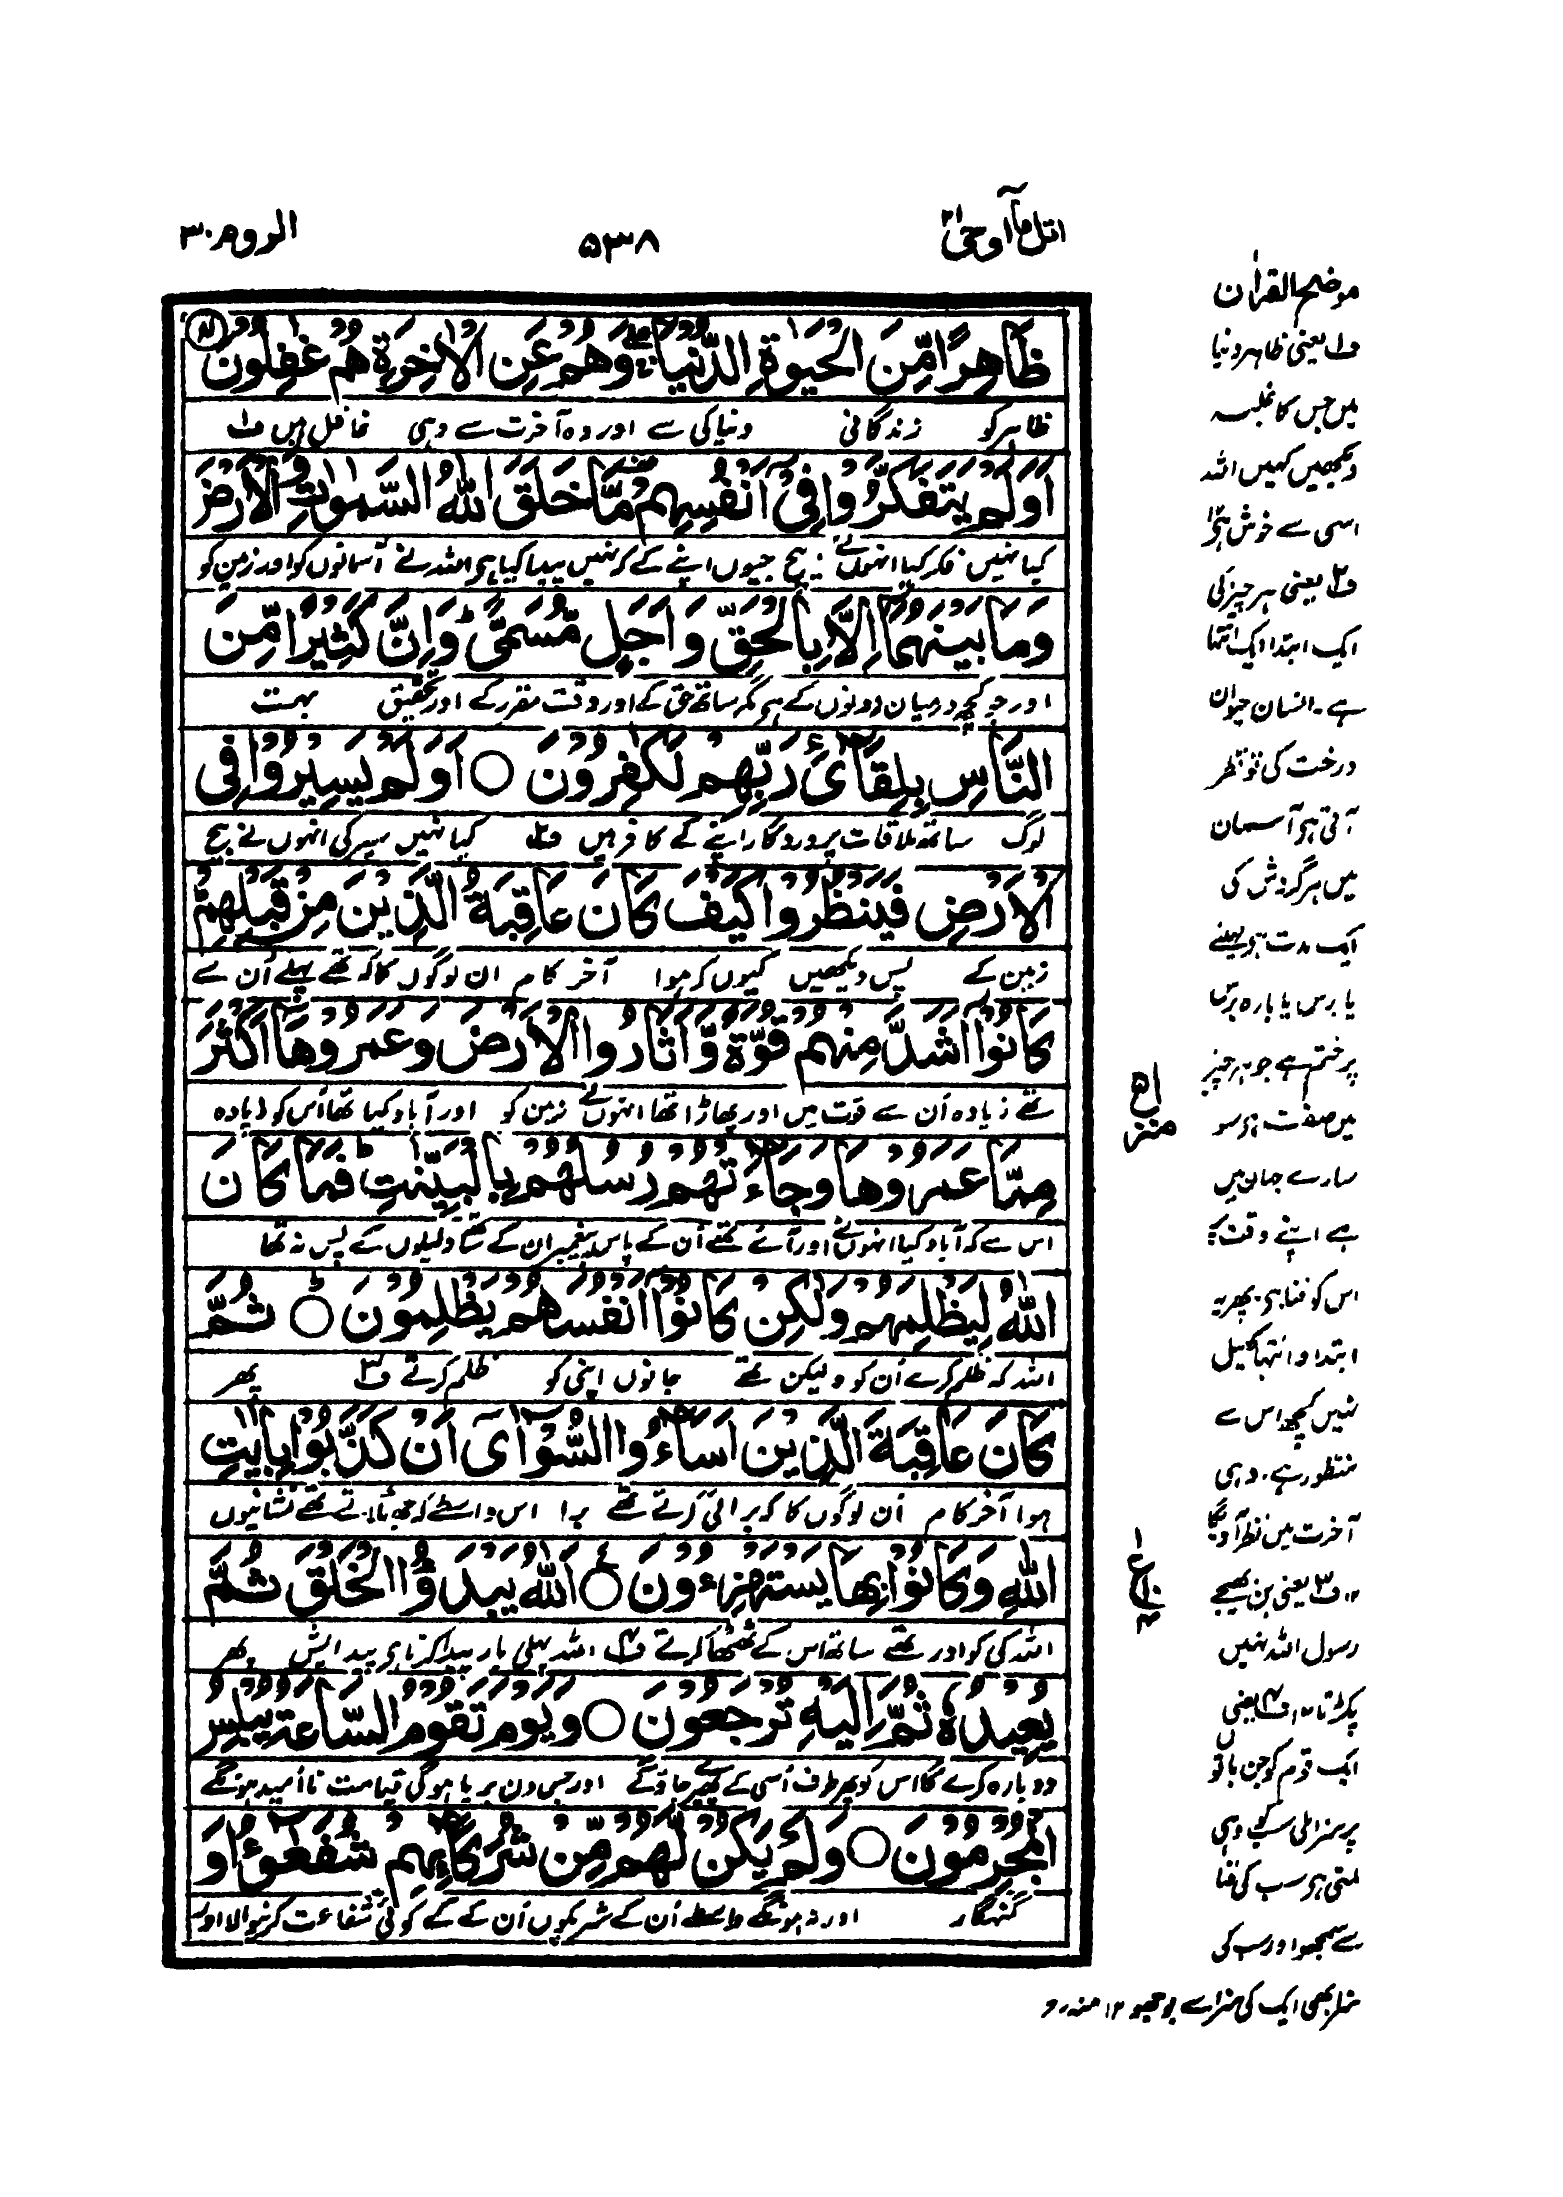 اتل مآ اوحی ۲۱
۵۳۸
الروم ۳۰
ظَاهِرًا مِّنَ الْحَيٰوةِ الدُّنْيَا ۖ وَهُمْ عَنِ الْاٰخِرَةِ هُمْ غٰفِلُوْنَ
ظاہر کو زندگانی دنیا کی سے اور وہ آخرت سے وہی غافل ہیں ف۱
اَوَلَمْ يَتَفَكَّرُوْا فِيْٓ اَنْفُسِهِمْ ۗ مَّا خَلَقَ اللّٰهُ السَّمٰوٰتِ وَالْاَرْضَ
کیا نہیں فکر کیا انہوں نے بیچ جیوں اپنے کے کہ نہیں پیدا کیا ہی اللہ نے آسمانوں کو اور زمین کو
وَمَا بَيْنَهُمَآ اِلَّا بِالْحَقِّ وَاَجَلٍ مُّسَمًّى ؕ وَاِنَّ كَثِيْرًا مِّنَ
اور جو کچھ درمیان دونوں کے ہی مگر ساتھ حق کے اور وقت مقرر کے اور تحقیق بہت
النَّاسِ بِلِقَآئِ رَبِّهِمْ لَكٰفِرُوْنَ ○ اَوَلَمْ يَسِيْرُوْا فِي
لوگ ساتھ ملاقات پروردگار اپنے کے کافر ہیں ف۲ کیا نہیں سیر کی انہوں نے بیچ
الْاَرْضِ فَيَنْظُرُوْا كَيْفَ كَانَ عَاقِبَةُ الَّذِيْنَ مِنْ قَبْلِهِمْ ؕ
زمین کے پس دیکھیں کیوں کر ہوا آخر کام ان لوگوں کا کہ تھے پہلے اُن سے
كَانُوْٓا اَشَدَّ مِنْهُمْ قُوَّةً وَّاَثَارُوا الْاَرْضَ وَعَمَرُوْهَآ اَكْثَرَ
تھے زیادہ اُن سے قوت میں اور پھاڑا تھا انہوں نے زمین کو اور آباد کیا تھا اُس کو زیادہ
مِمَّا عَمَرُوْهَا وَجَآءَتْهُمْ رُسُلُهُمْ بِالْبَيِّنٰتِ ؕ فَمَا كَانَ
اس سے کہ آباد کیا انہوں نے اور آئے تھے اُن کے پاس پیغمبر ان کے ساتھ دلیلوں کے پس نہ تھا
اللّٰهُ لِيَظْلِمَهُمْ وَلٰكِنْ كَانُوْٓا اَنْفُسَهُمْ يَظْلِمُوْنَ ○ ؕ ثُمَّ
اللہ کہ ظلم کرے اُن کو ولیکن تھے جانوں اپنی کو ظلم کرتے ف۳ پھر
كَانَ عَاقِبَةَ الَّذِيْنَ اَسَآءُوا السُّوْٓاٰى اَنْ كَذَّبُوْا بِاٰيٰتِ
ہوا آخر کام اُن لوگوں کا کہ برائی کرتے تھے برا اس واسطے کہ جھٹلاتے تھے نشانیوں
اللّٰهِ وَكَانُوْا بِهَا يَسْتَهْزِءُوْنَ ○ اَللّٰهُ يَبْدَؤُا الْخَلْقَ ثُمَّ
اللہ کی کو اور تھے ساتھ اس کے ٹھٹھا کرتے ف۴ اللہ پہلی بار پیدا کرتا ہی پیدائش پھر
يُعِيْدُهٗ ثُمَّ اِلَيْهِ تُرْجَعُوْنَ ○ وَيَوْمَ تَقُوْمُ السَّاعَةُ يُبْلِسُ
دوبارہ کرے گا اس کو پھر طرف اُسی کے پھیرے جاؤ گے اور جس دن برپا ہوگی قیامت نا اُمید ہونگے
الْمُجْرِمُوْنَ ○ وَلَمْ يَكُنْ لَّهُمْ مِّنْ شُرَكَآئِهِمْ شُفَعٰٓؤُا وَ
گنہگار اور نہ ہونگے واسطے اُن کے شریکوں اُن کے کے کوئی شفاعت کرنیوالا اور
موضح القرآن
ف۱ یعنی ظاہر دنیا
میں جس کا غلبہ
دیکھیں کہیں اللہ
اسی سے خوش ہی ۱۲
ف۲ یعنی ہر چیز کی
ایک ابتدا ایک انتہا
ہے ۔ انسان حیوان
درخت کی تو نظر
آتی ہی آسمان
میں ہر گردش کی
ایک مدت ہی مہینے
یا برس یا بارہ برس
پر ختم ہے جو ہر چیز
میں صفت ہی سو
سارے جہان میں
ہے اپنے وقت پر
اس کو فنا ہی ۔ پھر یہ
ابتدا و انتہا کھیل
نہیں کچھ اس سے
منظور ہے ۔ وہی
آخرت میں نظر آویگا
۱۲ ف۳ یعنی بن بھیجے
رسول اللہ نہیں
پکڑتا ۱۲ ف۴ یعنی
ایک قوم کو جن باتوں
پر سزا ملی سب کو وہی
ملتی ہی سب کی فنا
سے سمجھو اور سب کی
سزا بھی ایک کی سزا سے بوجھو ۱۲ منہ رح